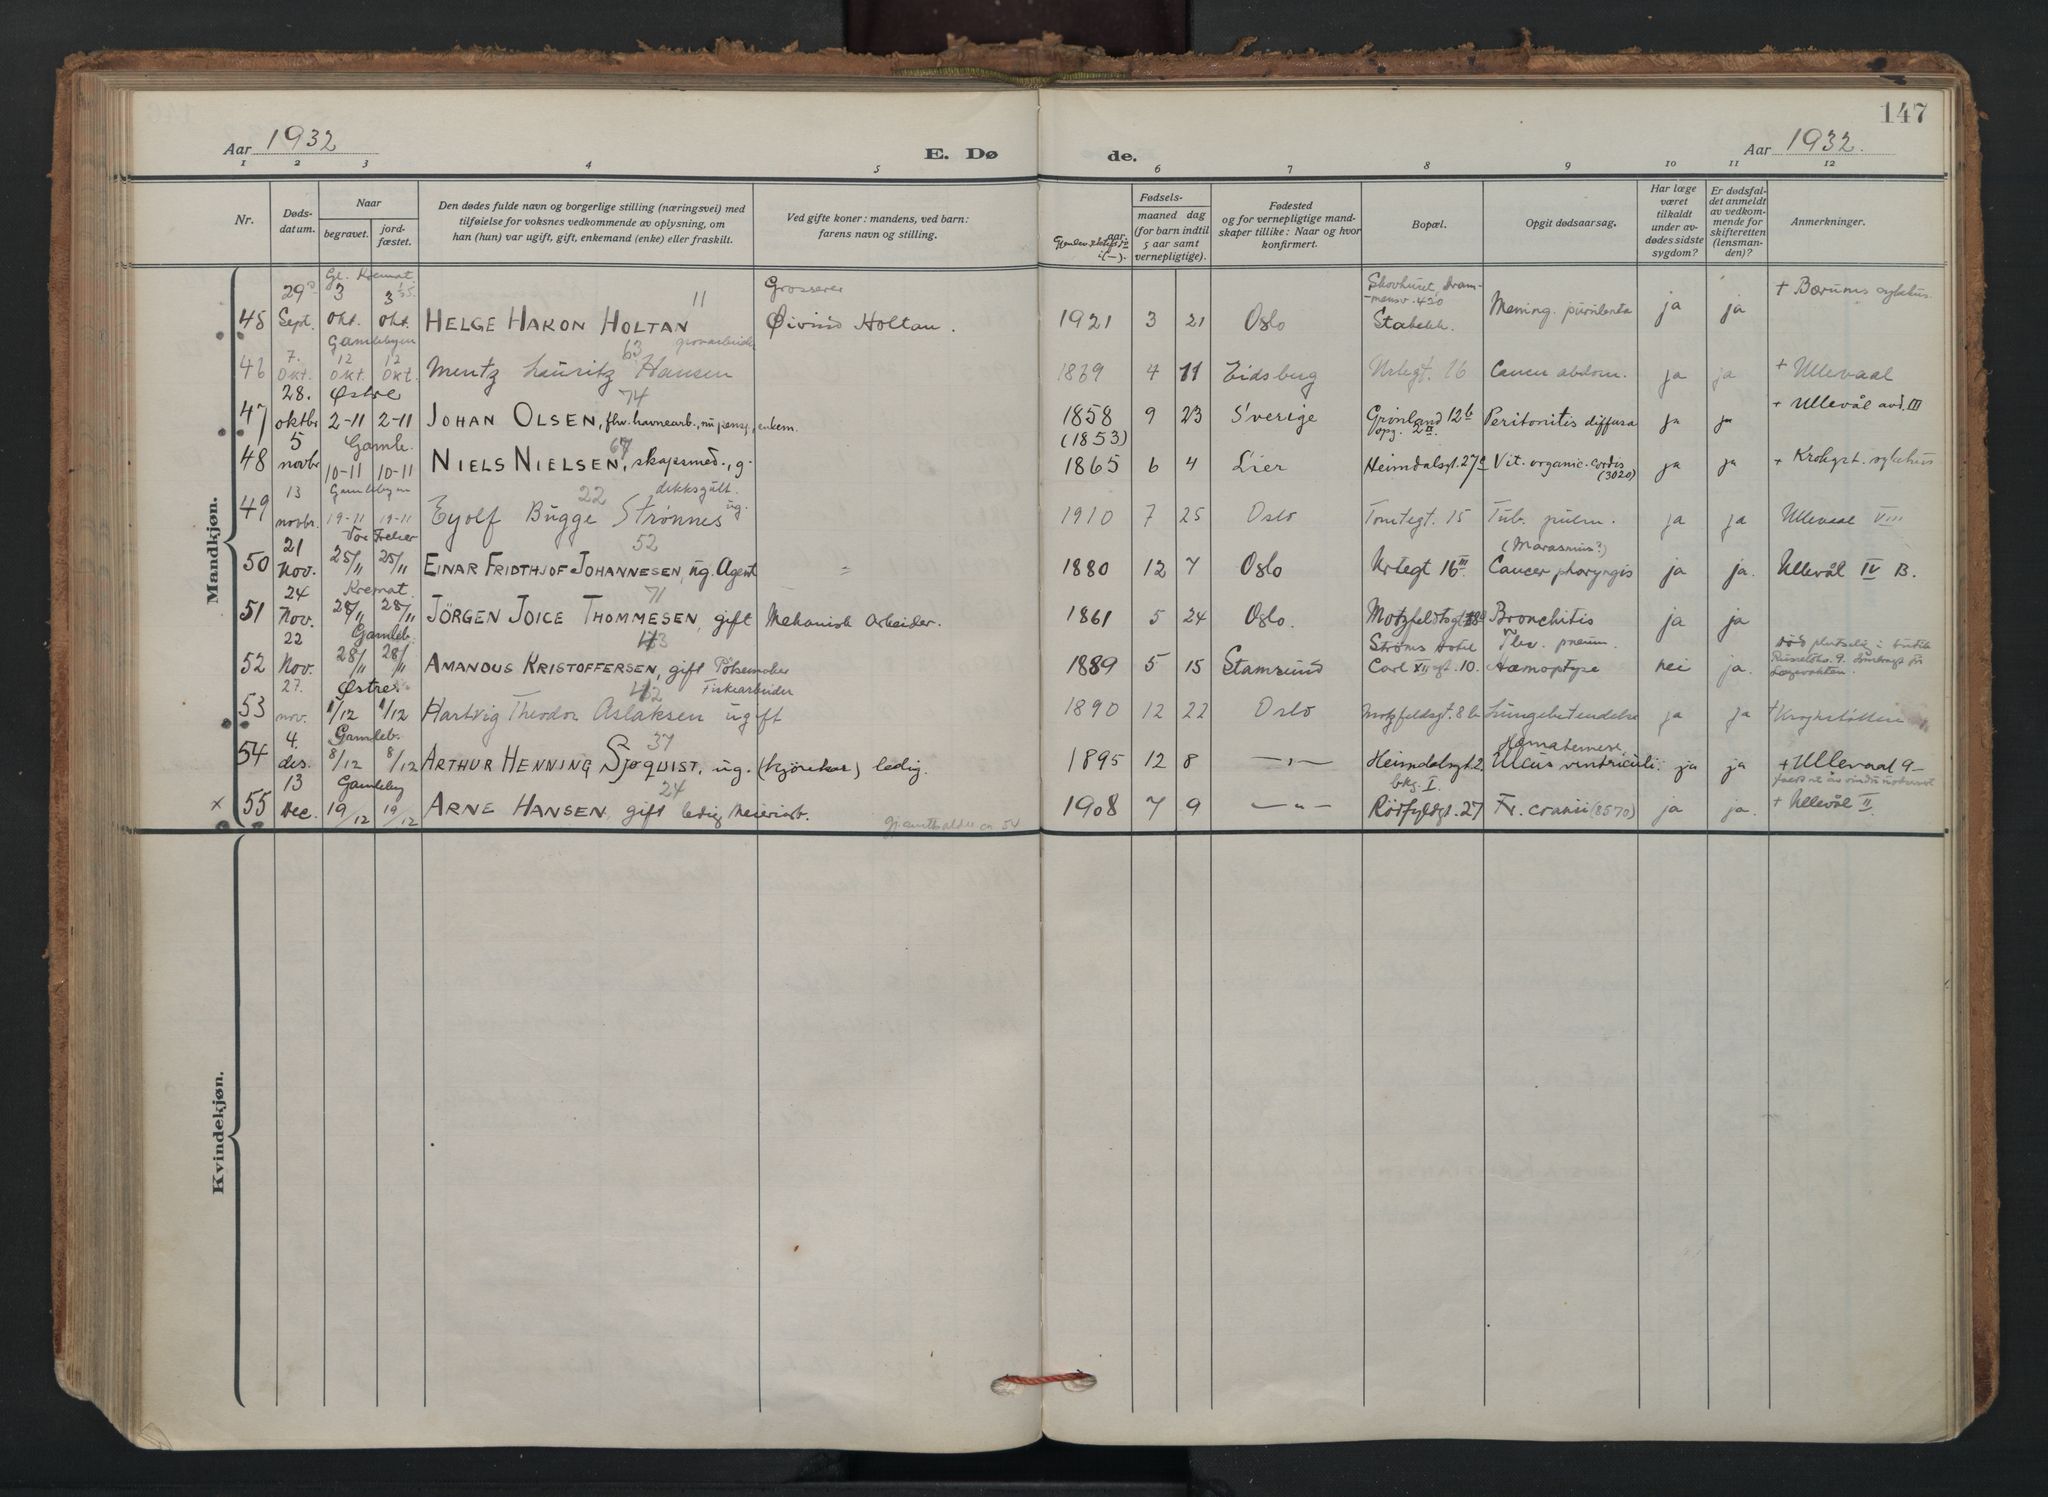 147
Aar 1932
E. Dø
de.
Aar 1932.
1 2 3 4 5 6 7 8 9 10 11 12
Nr.
Døds-
datum.
Naar
begravet.
jord-
fæstet.
Den dødes fulde navn og borgerlige stilling (næringsvei) med
tilføielse for voksnes vedkommende av oplysning, om
han (hun) var ugift, gift, enkemand (enke) eller fraskilt.
Ved gifte koner: mandens, ved barn:
farens navn og stilling.
Fødsels-
aar.
maaned dag
(for barn indtil
5 aar samt
vernepligtige).
Fødested
og for vernepligtige mand-
skaper tillike: Naar og hvor
konfirmert.
Bopæl.
Opgit dødsaarsag.
Har læge
været
tilkaldt
under av-
dødes sidste
sygdom?
Er dødsfal-
det anmeldt
av vedkom-
mende for
skifteretten
(lensman-
den)?
Anmerkninger.
Mandkjøn.
Gl. Kremat.
29 3 3 11 Grosserer Skovhuset, Dram-
mensv. 420 + Bærums sykehus.
45 Sept. Okt. Okt. HELGE HAKON HOLTAN Øivind Holtan. 1921 3 21 Oslo Stabekk. Mening. purulenta ja ja
Gamlebyen
7. 12 12 63 grovarbeider
46 Okt. Okt. Okt. Mentz Lauritz Hansen 1869 4 11 Eidsberg Urtegt. 16 Cancer abdom. ja ja + Ullevaal
28. Østre 74
47 oktbr 2-11 2-11 JOHAN OLSEN, fhv. havnearb., nu pensj., enkem. 1858 9 23 Sverige Grønland 12b Peritonitis diffusa ja ja + Ullevål avd. III
(1853) opg. 2 II.
5 Gamle. 67
48 novbr 10-11 10-11 NIELS NIELSEN, skapsmed., g. 1865 6 4 Lier Heimdalsgt. 27 Vit. organic. cordis ja ja + Krohgst. sykehus
(3020)
13 Gamlebyen 22 dekksgutt.
49 novbr. 19-11 19-11 Eyolf Bugge Strønnes ug. 1910 7 25 Oslo Tomtegt. 15 Tub. pulm. ja ja Ullevaal VIII
21 Vor Frelser 52 (Marasmus?)
50 Nov. 25/11 25/11 EINAR FRIDTHJOF JOHANNESEN, ug. Agent " 1880 12 7 Oslo Urtegt 16 III. Cancer pharyngis ja ja. Ullevål IV B.
24 Kremat. 71
51 Nov. 28/11 28/11 JÖRGEN JOICE THOMMESEN, gift Mekanisk Arbeider. 1861 5 24 Oslo. Motzfeldtsgt Bronchitis ja ja
22 Gamleb. 43 Strøms Hotel Død plutselig i
52 Nov. 28/11 28/11 AMANDUS KRISTOFFERSEN, gift Pølsemaker 1889 5 15 Stamsund Carl XII gt. 10. Hæmoptyse nei ja.
27. Østre. 42 Fiskearbeider
53 nov. 1/12 1/12 Hartvig Theodor Aslaksen ugift 1890 12 22 Oslo Motzfeldsgt. 8b Lungebetendelse ja ja + Krohgstøtten
4. Gamleb. 37 Hæmatemese,
54 des. 8/12 8/12 ARTHUR HENNING SJØQUIST, ug. (kjørekar) ledig. 1895 12 8 —"— Heimdalsgt. 2 Ulcus ventriculi. ja ja + Ullevaal 9
bkg. I.
13 Gamleby 24
x 55 Dec. 19/12 19/12 ARNE HANSEN, gift ledig Meierist. 1908 7 9 —"— Rødfyldgt. 27 Fr. cranii (8570) ja ja. + Ullevål II.
Kvindekjøn.